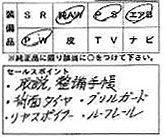 装備品 SR 純AW PS エアB
PW 皮 TV ナビ
※純正品に限り該当に○をつけて下さい。
セールスポイント
・取説、整備手帳
・背面タイヤ・グリルガード
・リヤスポイラー・ルーフレール